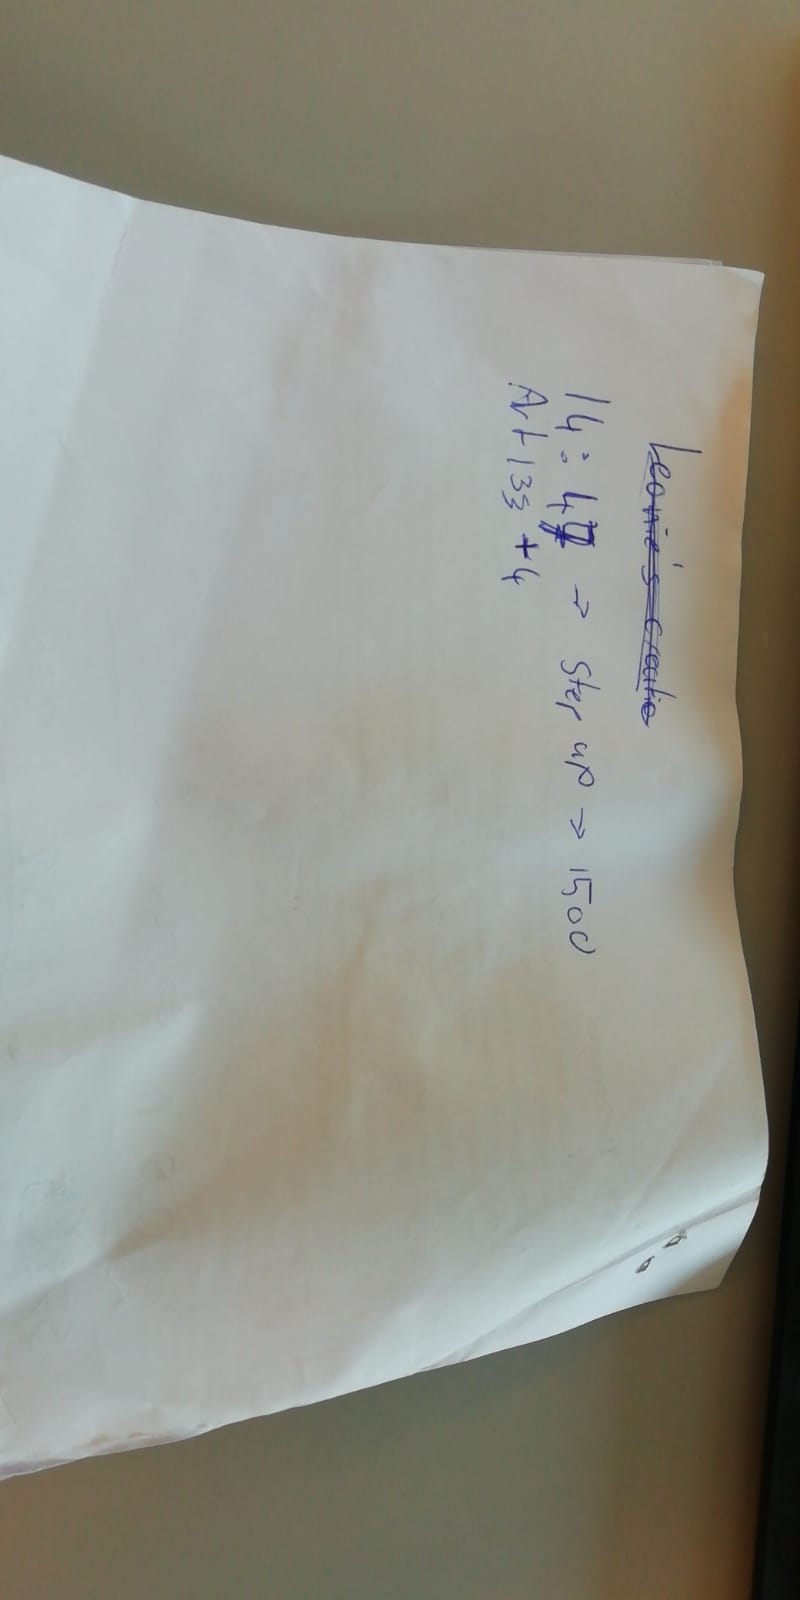 Leonie's Creatie
14:47 → Step up → 1500
Art 133 +4